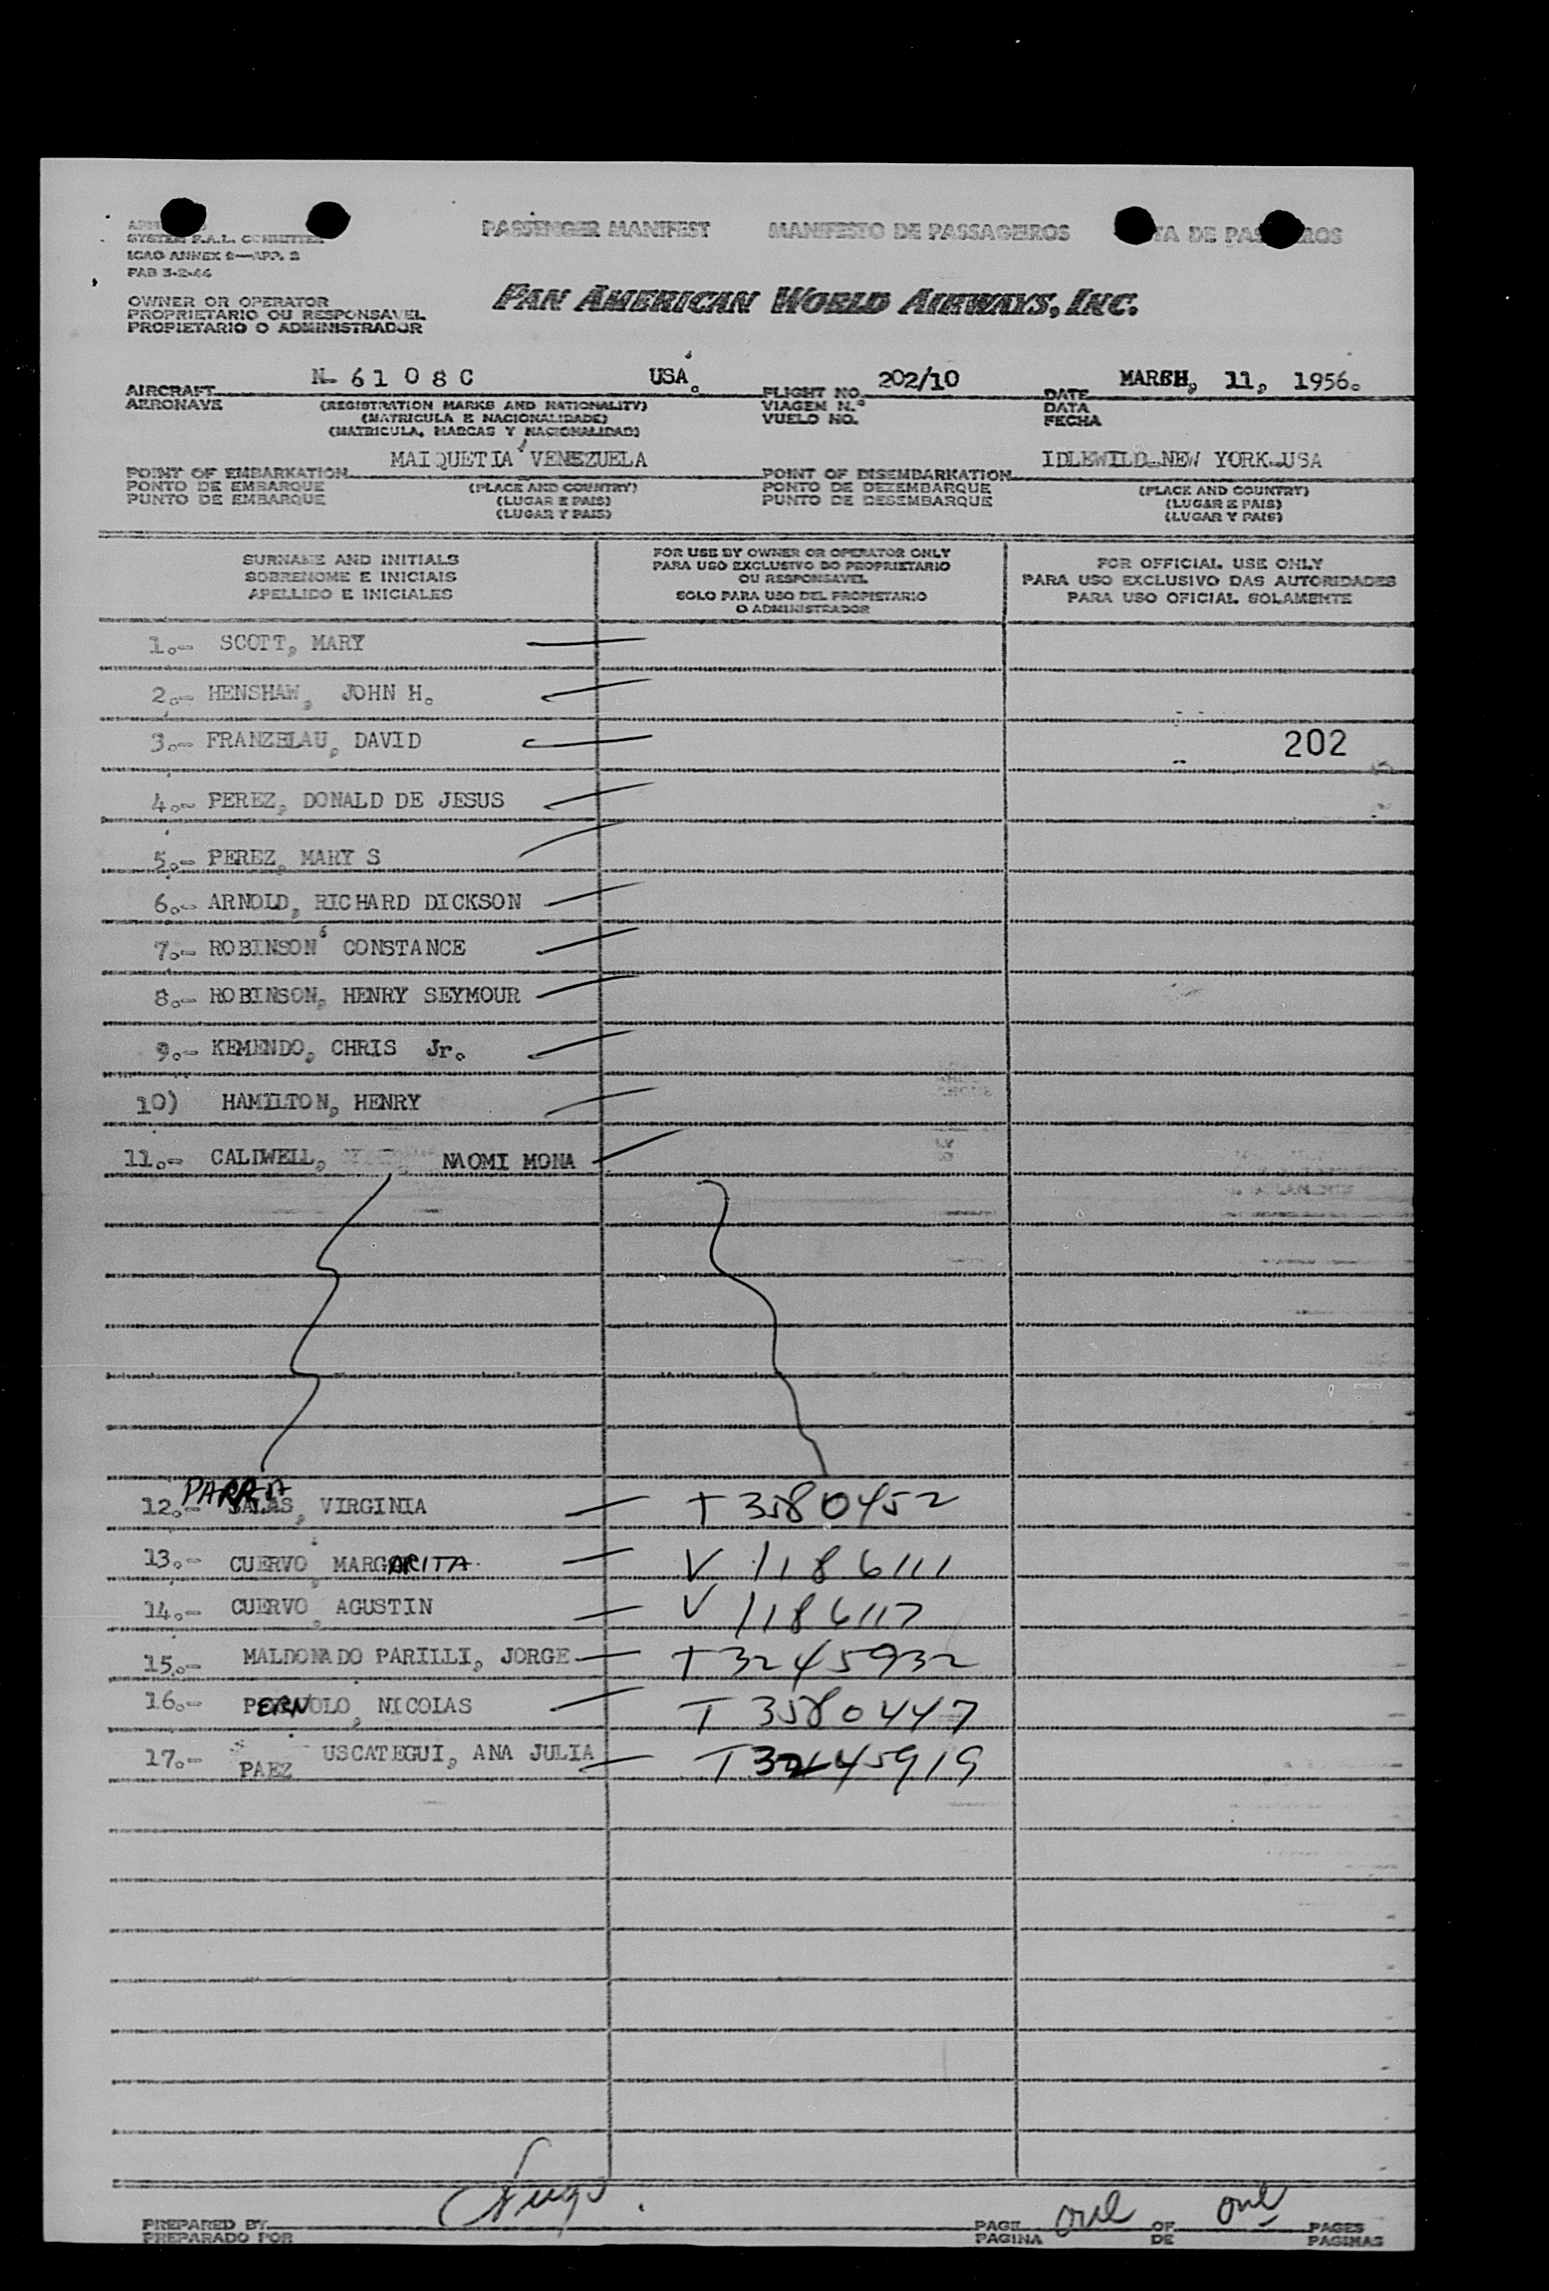 PASSENGER MANIFEST MANIFESTO DE PASSAGEIROS TA DE PAS ROS
SYSTEM P.A.L. COMMITTEE
ICAO ANNEX 9—APP. 2
PAB 3-2-46
OWNER OR OPERATOR
PROPRIETARIO OU RESPONSAVEL
PROPIETARIO O ADMINISTRADOR
PAN AMERICAN WORLD AIRWAYS, INC.
AIRCRAFT N- 6 1 0 8 C USA. FLIGHT NO. 202/10 DATE MARCH, 11, 1956.
AERONAVE (REGISTRATION MARKS AND NATIONALITY) VIAGEM N.º DATA
(MATRICULA E NACIONALIDADE) VUELO NO. FECHA
(MATRICULA, MARCAS Y NACIONALIDAD)
POINT OF EMBARKATION MAIQUETIA VENEZUELA POINT OF DISEMBARKATION IDLEWILD-NEW YORK-USA
PONTO DE EMBARQUE (PLACE AND COUNTRY) PONTO DE DEZEMBARQUE (PLACE AND COUNTRY)
PUNTO DE EMBARQUE (LUGAR E PAIS) PUNTO DE DESEMBARQUE (LUGAR E PAIS)
(LUGAR Y PAIS) (LUGAR Y PAIS)
SURNAME AND INITIALS
SOBRENOME E INICIAIS
APELLIDO E INICIALES
FOR USE BY OWNER OR OPERATOR ONLY
PARA USO EXCLUSIVO DO PROPRIETARIO
OU RESPONSAVEL
SOLO PARA USO DEL PROPIETARIO
O ADMINISTRADOR
FOR OFFICIAL USE ONLY
PARA USO EXCLUSIVO DAS AUTORIDADES
PARA USO OFICIAL SOLAMENTE
1.- SCOTT, MARY
2.- HENSHAW, JOHN H.
3.- FRANZBLAU, DAVID 202
4.- PEREZ, DONALD DE JESUS
5.- PEREZ, MARY S
6.- ARNOLD, RICHARD DICKSON
7.- ROBINSON CONSTANCE
8.- ROBINSON, HENRY SEYMOUR
9.- KEMENDO, CHRIS Jr.
10) HAMILTON, HENRY
11.- CALDWELL, NAOMI MONA
PARRA
12.- SALAS, VIRGINIA T 3580452
13.- CUERVO, MARGARITA V 1186111
14.- CUERVO, AGUSTIN V 1186117
15.- MALDONADO PARILLI, JORGE T 3245932
16.- PERNOLO, NICOLAS T 3580447
17.- PAEZ USCATEGUI, ANA JULIA T 3245919
PREPARED BY PAGE one OF one PAGES
PREPARADO POR PAGINA DE PAGINAS